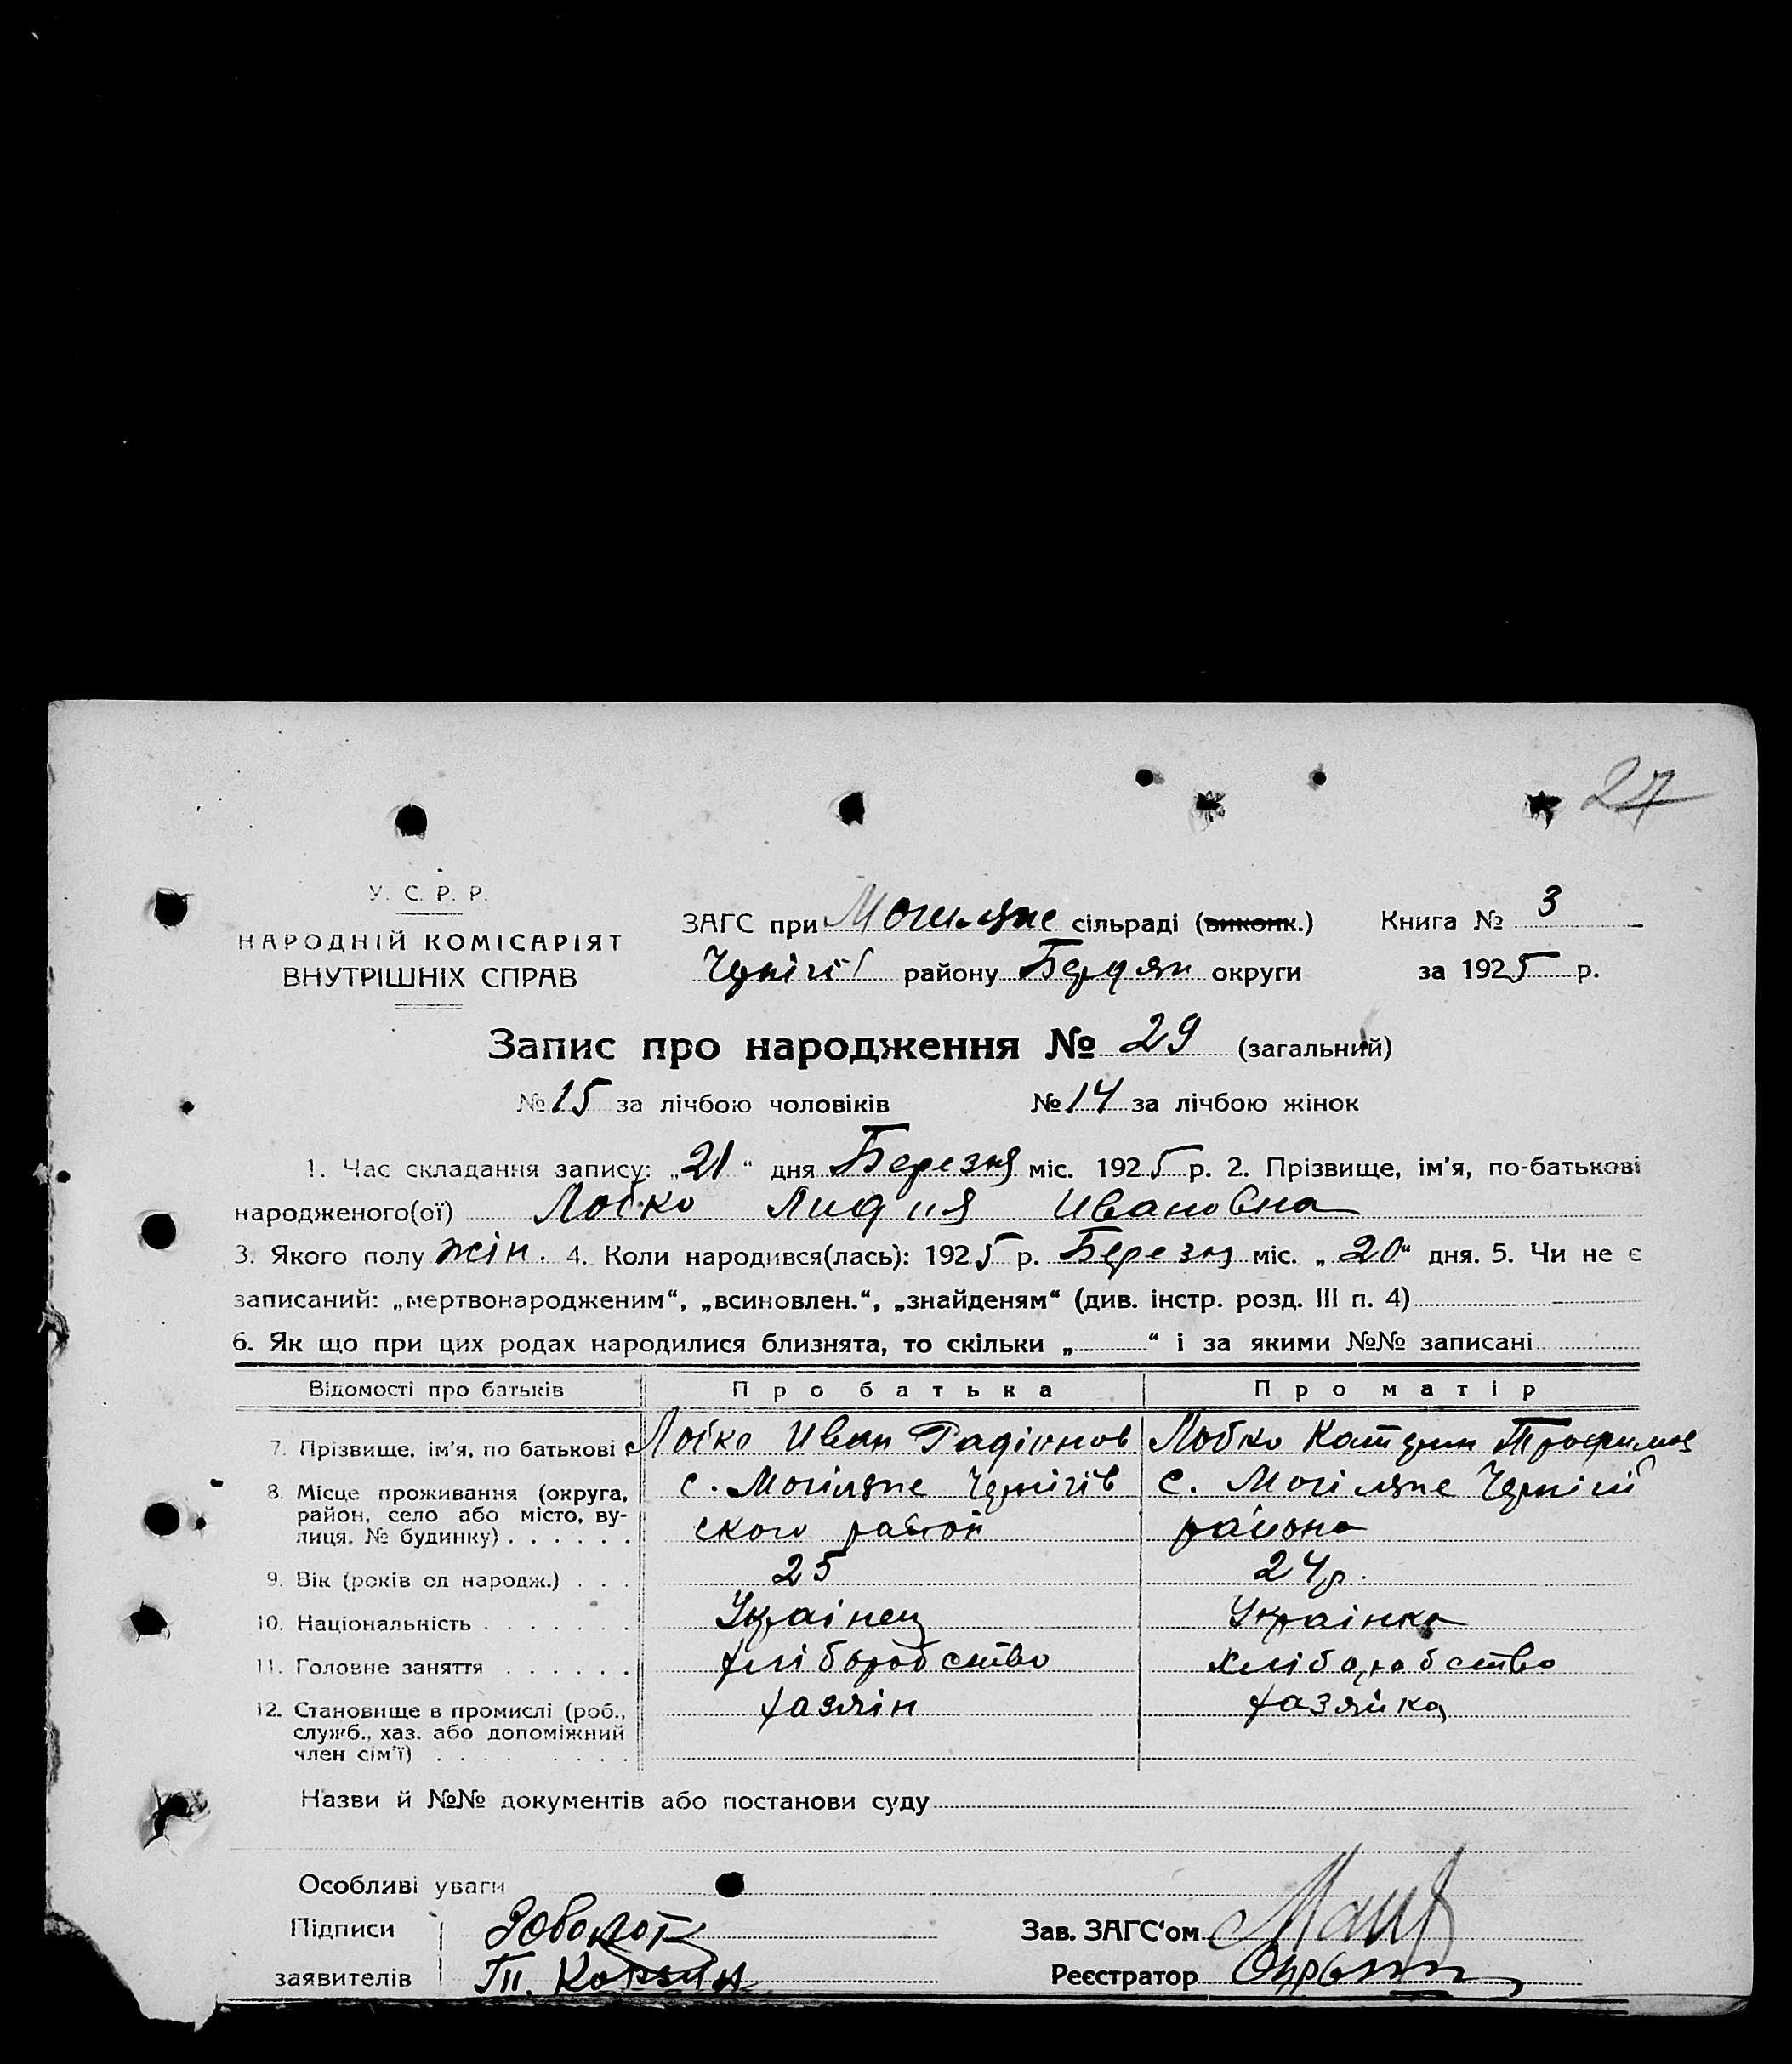 27
У. С. Р. Р.
НАРОДНІЙ КОМІСАРІЯТ
ВНУТРІШНІХ СПРАВ
ЗАГС при Могиляне сільраді (виконк.) Книга № 3
Черігів району Бердян округи за 1925 р.
Запис про народження № 29 (загальний)
№ 15 за лічбою чоловіків № 14 за лічбою жінок
1. Час складання запису: „21“ дня Березня міс. 1925 р. 2. Прізвище, ім'я, по-батькові
народженого(ої) Лобко Лидия Ивановна
3. Якого полу жін. 4. Коли народився(лась): 1925 р. Березня міс. „20“ дня. 5. Чи не є
записаний: „мертвонародженим“, „всиновлен.“, „знайденям“ (див. інстр. розд. III п. 4)
6. Як що при цих родах народилися близнята, то скільки „ “ і за якими №№ записані
Відомості про батьків Про батька Про матір
7. Прізвище, ім'я, по батькові Лобко Иван Радіонов Лобко Катерин Трофимов
8. Місце проживання (округа, район, село або місто, вулиця, № будинку) с. Могіляне Чернігівского район с. Могіляне Чернігів района
9. Вік (років од народж.) 25 24 р.
10. Національність Українец Українка
11. Головне заняття хліборобство хліборобство
12. Становище в промислі (роб., служб., хаз. або допоміжний член сім'ї) хазяін хазяйка
Назви й №№ документів або постанови суду
Особливі уваги
Підписи
Зав. ЗАГС'ом
заявителів
Реєстратор